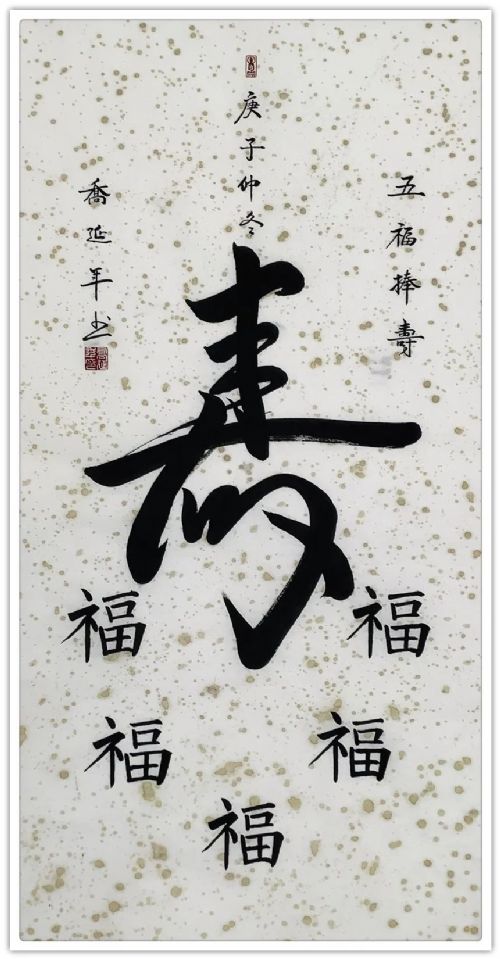 五福捧壽
庚子仲冬
壽
福
福
福
福
福
喬延年书